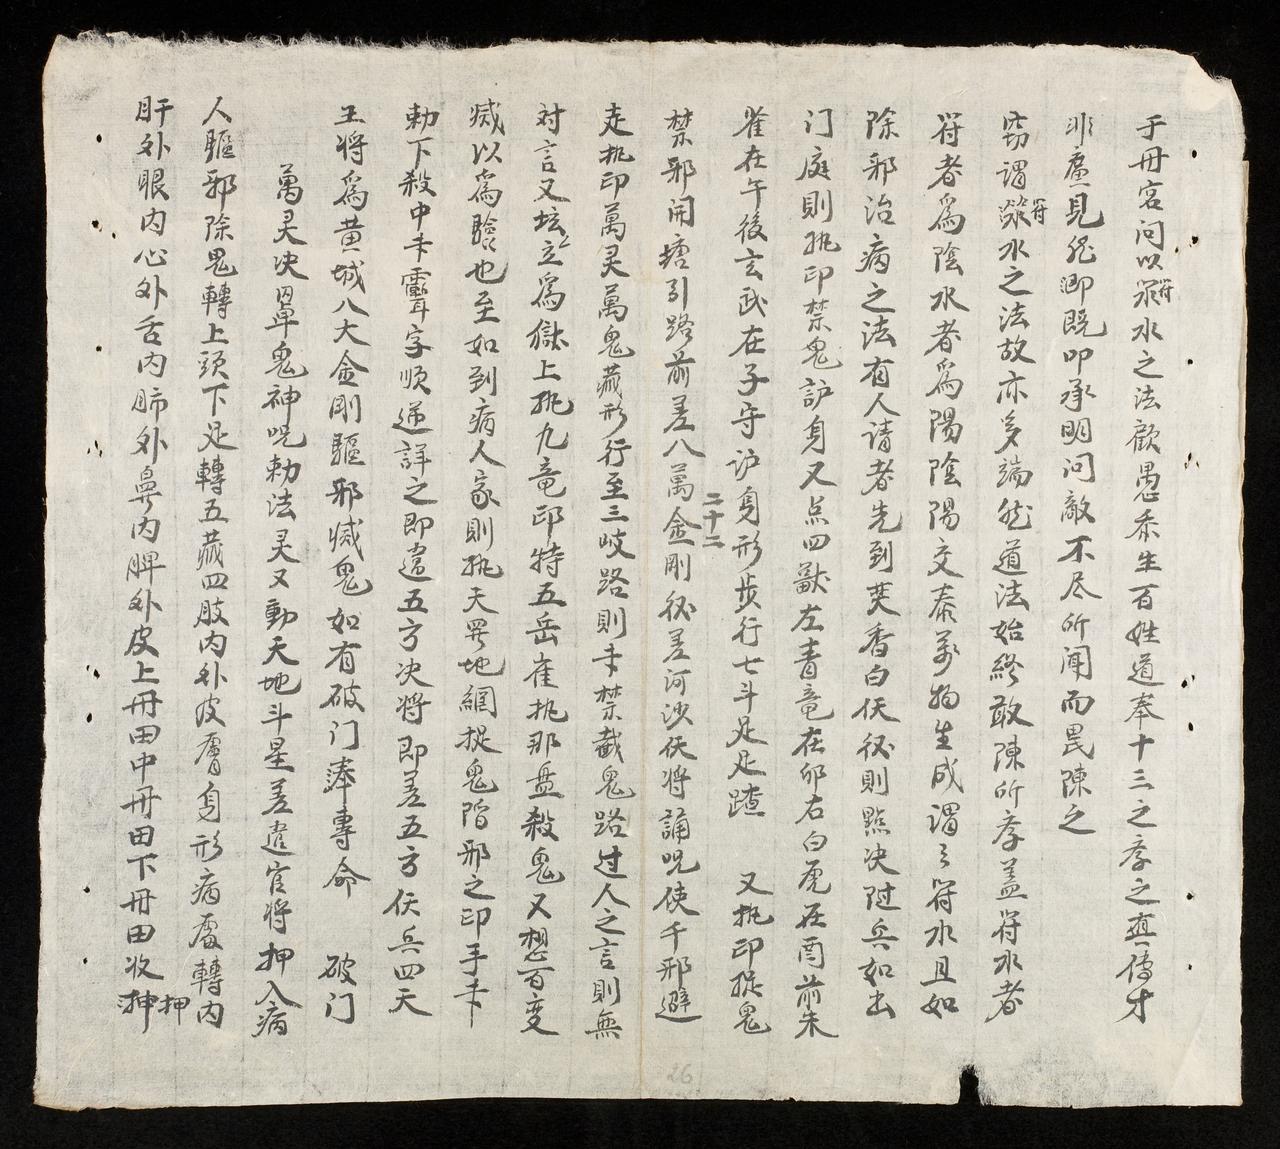 于冊宮问以符水之法歡愚忝生百姓道奉十三之孝之真傳才
非鹿見孤卿既叩承明问敵不尽所聞而畏陳之
窃谓符水之法故亦多端然道法始終敢陳所孝蓋符水者
符者爲陰水者爲陽陰陽交泰萬物生成謂之符水且如
除邪治病之法有人请者先到焚香白伏役則點决随兵如出
门庭則执印禁鬼護身又点四獸左青竜在卯右白虎在酉前朱
雀在午後玄武在子守护身形步行七斗足足躔 又执印捉鬼
禁邪開塘引路前差八萬金剛役差河沙伏将誦呪使千邪避
二十二
走执印萬灵萬鬼藏形行至三岐路則卡禁截鬼路过人之言則無
対言又坛立爲獄上执九竜印特五岳崔执那盘殺鬼又想百变
减以爲驗也至如到病人家則执天罗地網捉鬼陷邪之印手卡
勅下殺中卡字順逆詳之即遣五方决将即差五方伏兵四天
王将爲黄城八大金剛驅邪减鬼如有破门專命 破门
萬灵决鬼神呪勅法灵又動天地斗星差遣官将押入病
人驅邪除鬼轉上頭下足轉五藏四肢内外皮膚身形病處轉内
肝外眼内心外舌内肺外鼻内脾外皮上冊田中冊田下冊田收押
押
26